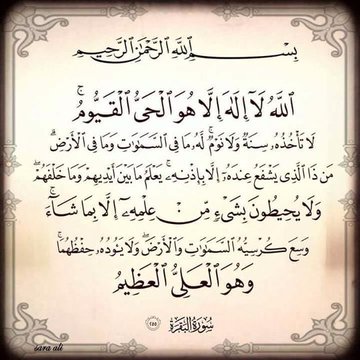 بِسْمِ ٱللَّهِ ٱلرَّحْمَٰنِ ٱلرَّحِيمِ
ٱللَّهُ لَآ إِلَٰهَ إِلَّا هُوَ ٱلْحَىُّ ٱلْقَيُّومُ ۚ
لَا تَأْخُذُهُۥ سِنَةٌ وَلَا نَوْمٌ ۚ لَّهُۥ مَا فِى ٱلسَّمَٰوَٰتِ وَمَا فِى ٱلْأَرْضِ ۗ
مَن ذَا ٱلَّذِى يَشْفَعُ عِندَهُۥٓ إِلَّا بِإِذْنِهِۦ ۚ يَعْلَمُ مَا بَيْنَ أَيْدِيهِمْ وَمَا خَلْفَهُمْ ۖ
وَلَا يُحِيطُونَ بِشَىْءٍ مِّنْ عِلْمِهِۦٓ إِلَّا بِمَا شَآءَ ۚ
وَسِعَ كُرْسِيُّهُ ٱلسَّمَٰوَٰتِ وَٱلْأَرْضَ ۖ وَلَا يَـُٔودُهُۥ حِفْظُهُمَا ۚ
وَهُوَ ٱلْعَلِىُّ ٱلْعَظِيمُ
سُورَةُ ٱلْبَقَرَةِ ٢٥٥
sara ali